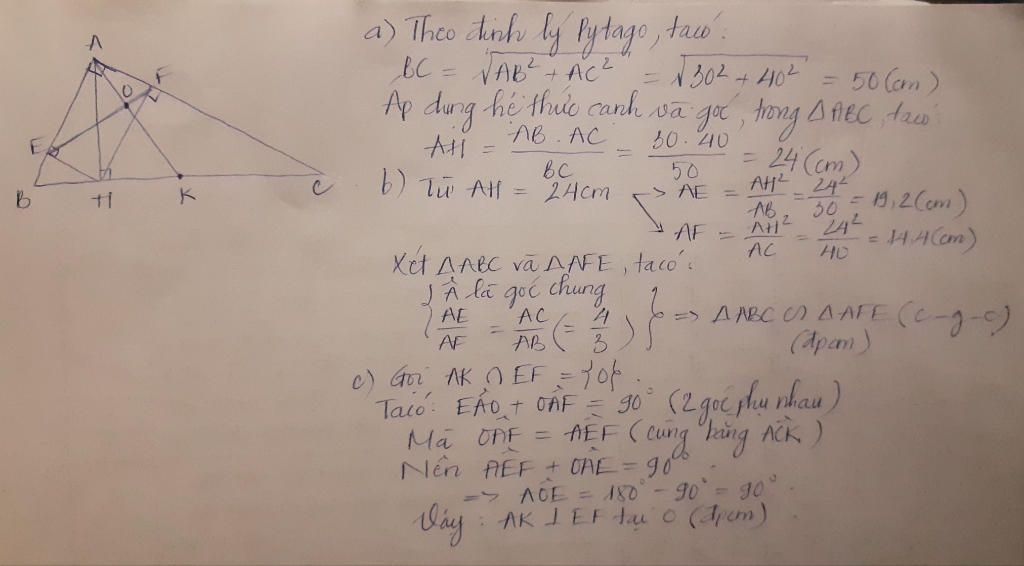 A
F
O
E
B
H
K
C
a) Theo định lý Pytago, ta có:
BC = √AB² + AC² = √30² + 40² = 50 (cm)
Áp dụng hệ thức cạnh và góc, trong ΔABC, ta có:
AH = AB . AC / BC = 30 . 40 / 50 = 24 (cm)
b) Từ AH = 24cm → AE = AH² / AB = 24² / 30 = 19,2 (cm)
↘ AF = AH² / AC = 24² / 40 = 14,4 (cm)
Xét ΔABC và ΔAFE, ta có:
{ Â là góc chung
AE / AF = AC / AB (= 4 / 3) } => ΔABC ∽ ΔAFE (c-g-c)
(đpcm)
c) Gọi AK ∩ EF = {O}.
Ta có: EÂO + OÂF = 90° (2 góc phụ nhau)
Mà OÂF = AÊF (cùng bằng AĈK)
Nên AÊF + OÂE = 90°
=> AÔE = 180° - 90° = 90°.
Vậy: AK ⊥ EF tại O (đpcm)